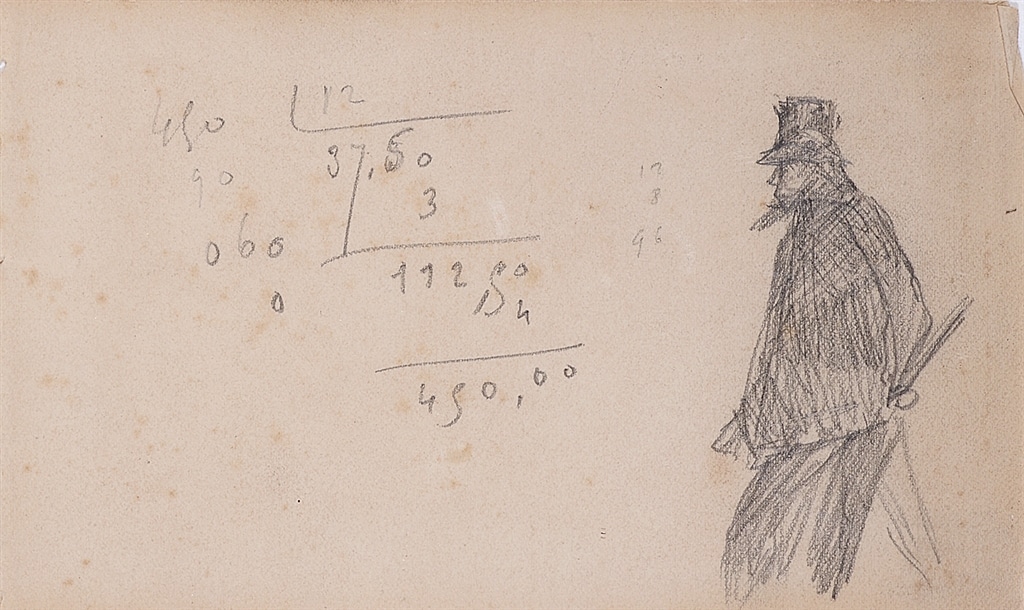 450 12
90 37,50
3
060
0 112 50
4
450,00
12
8
96